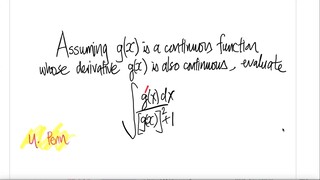 Assuming g(x) is a continuous function
whose derivative g'(x) is also continuous, evaluate
∫ g'(x) dx / [g(x)]² + 1